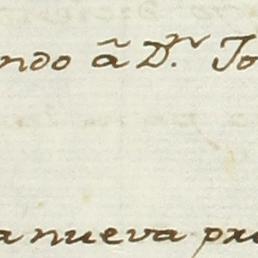 ndo ã D.ⁿ Jo
a nueva pr